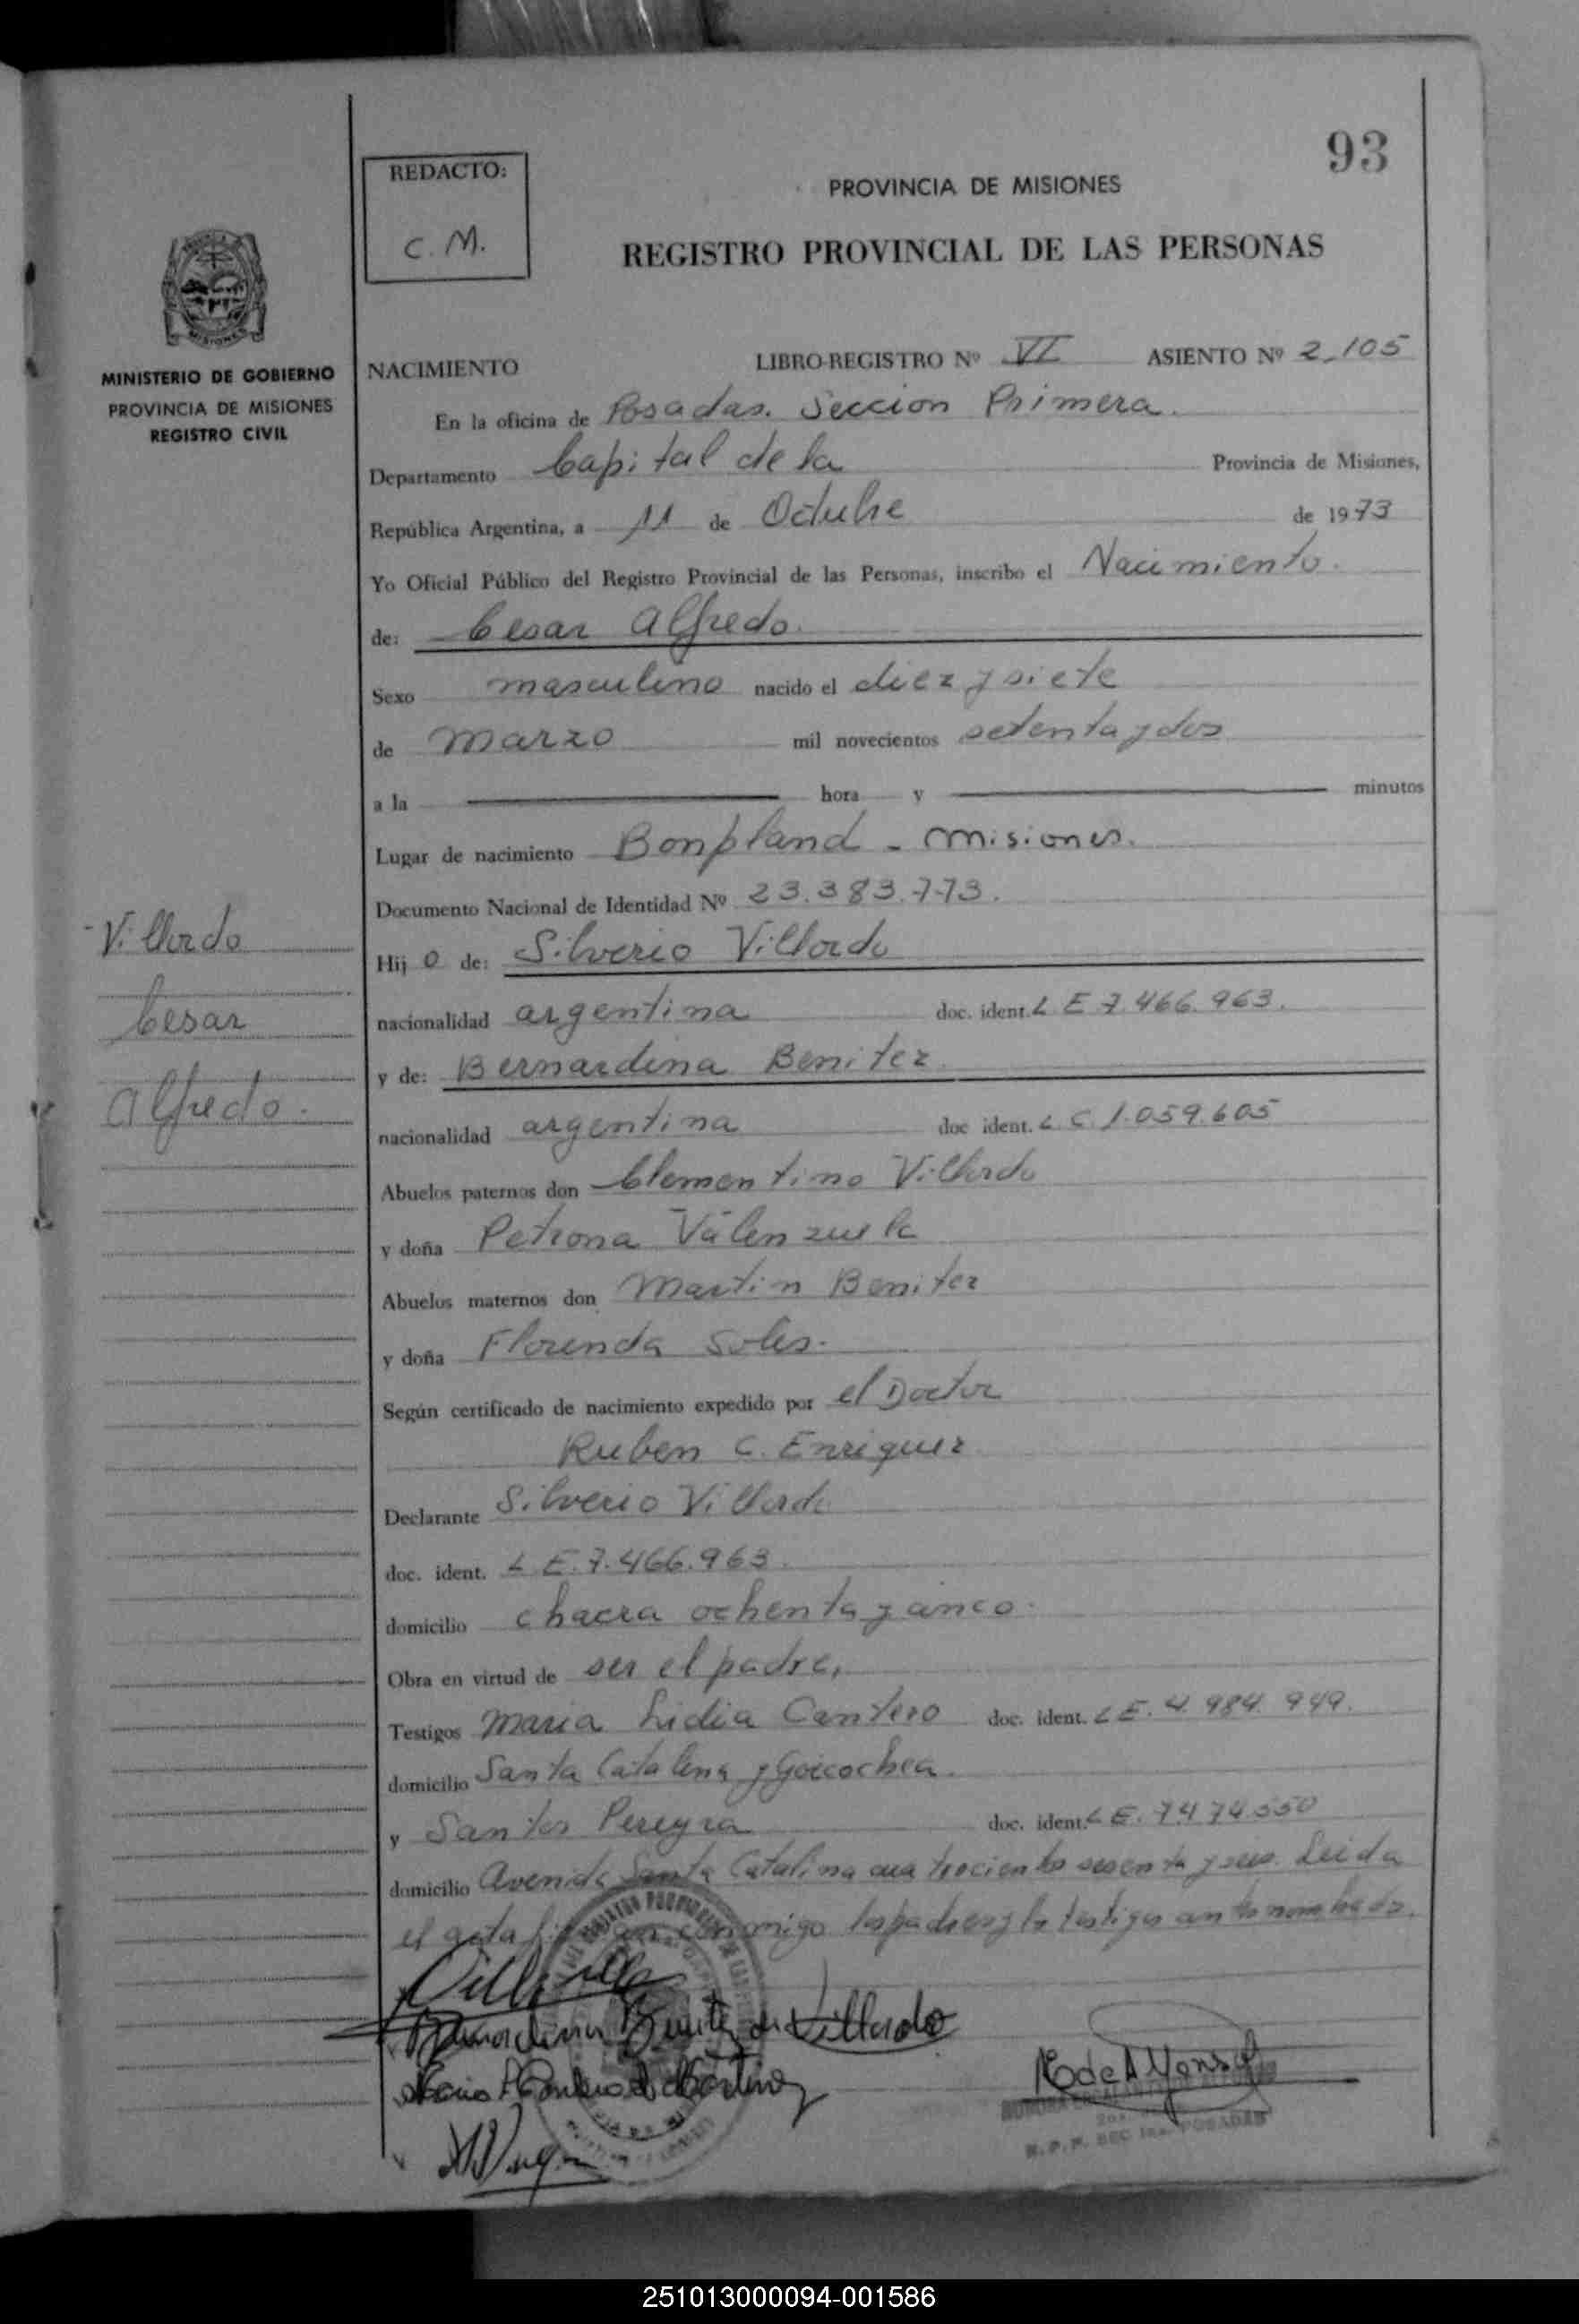 93
REDACTO:
C. M.
PROVINCIA DE MISIONES
REGISTRO PROVINCIAL DE LAS PERSONAS
MISIONES
MINISTERIO DE GOBIERNO
PROVINCIA DE MISIONES
REGISTRO CIVIL
NACIMIENTO LIBRO-REGISTRO Nº VI ASIENTO Nº 2.105
En la oficina de Posadas. Seccion Primera.
Departamento Capital de la Provincia de Misiones,
República Argentina, a 11 de Octubre de 1973
Yo Oficial Público del Registro Provincial de las Personas, inscribo el Nacimiento.
de: Cesar Alfredo.
Sexo masculino nacido el diez y siete
de Marzo mil novecientos setenta y dos
a la hora y minutos
Lugar de nacimiento Bonpland - Misiones.
Documento Nacional de Identidad Nº 23.383.773.
Villordo
Cesar
Alfredo.
Hij o de: Silverio Villordo
nacionalidad argentina doc. ident. L E 7.466.963.
y de: Bernardina Benitez
nacionalidad argentina doc ident. L. C. 1.059.605
Abuelos paternos don Clementino Villordo
y doña Petrona Valenzuela
Abuelos maternos don Martin Benitez
y doña Florinda Soles.
Según certificado de nacimiento expedido por el Doctor
Ruben C. Enriquez
Declarante Silverio Villordo
doc. ident. L E. 7.466.963.
domicilio chacra ochenta y cinco.
Obra en virtud de ser el padre,
Testigos Maria Lidia Cantero doc. ident. L E. 4.984.949.
domicilio Santa Catalina y Goicochea.
y Santos Pereyra doc. ident. L E. 7474.550
domicilio Avenida Santa Catalina cuatrocientos sesenta y seis. Leida
el acta conmigo los padres y los testigos antenombrados.
Bernardina Benitez de Villordo
R.P.P. SEC 1ra. POSADAS
251013000094-001586